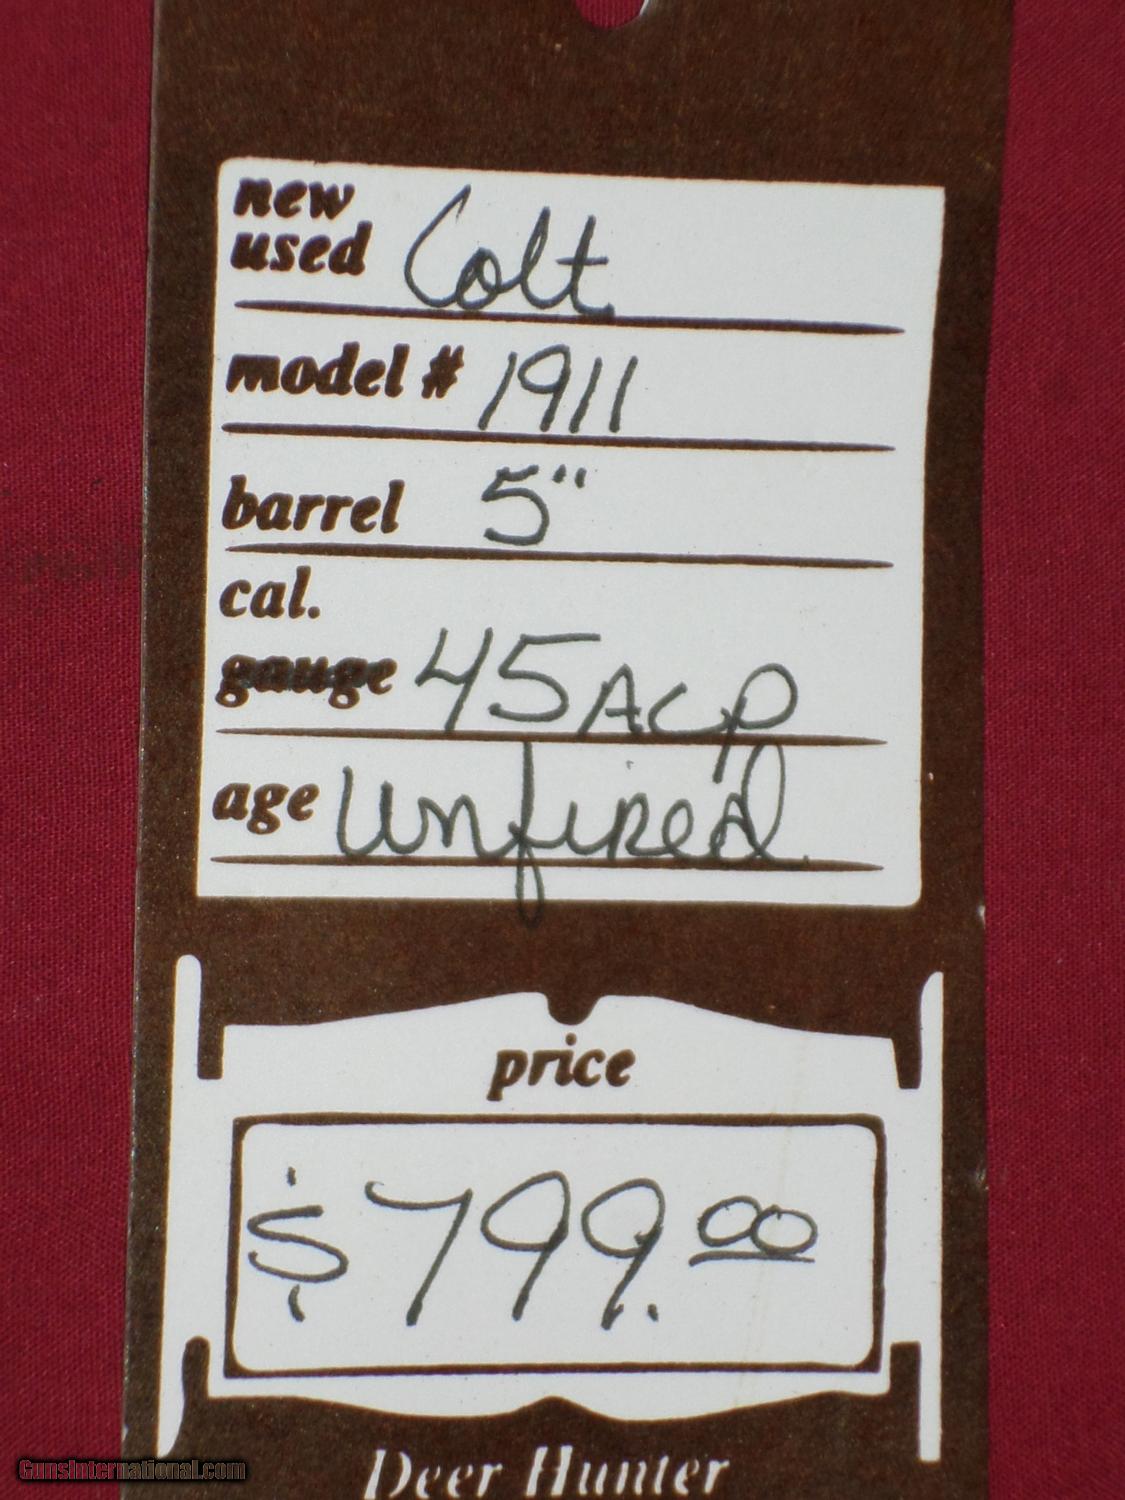 new
used Colt
model # 1911
barrel 5"
cal.
gauge 45 ACP
age unfired
price
$799.00
Deer Hunter
GunsInternational.com